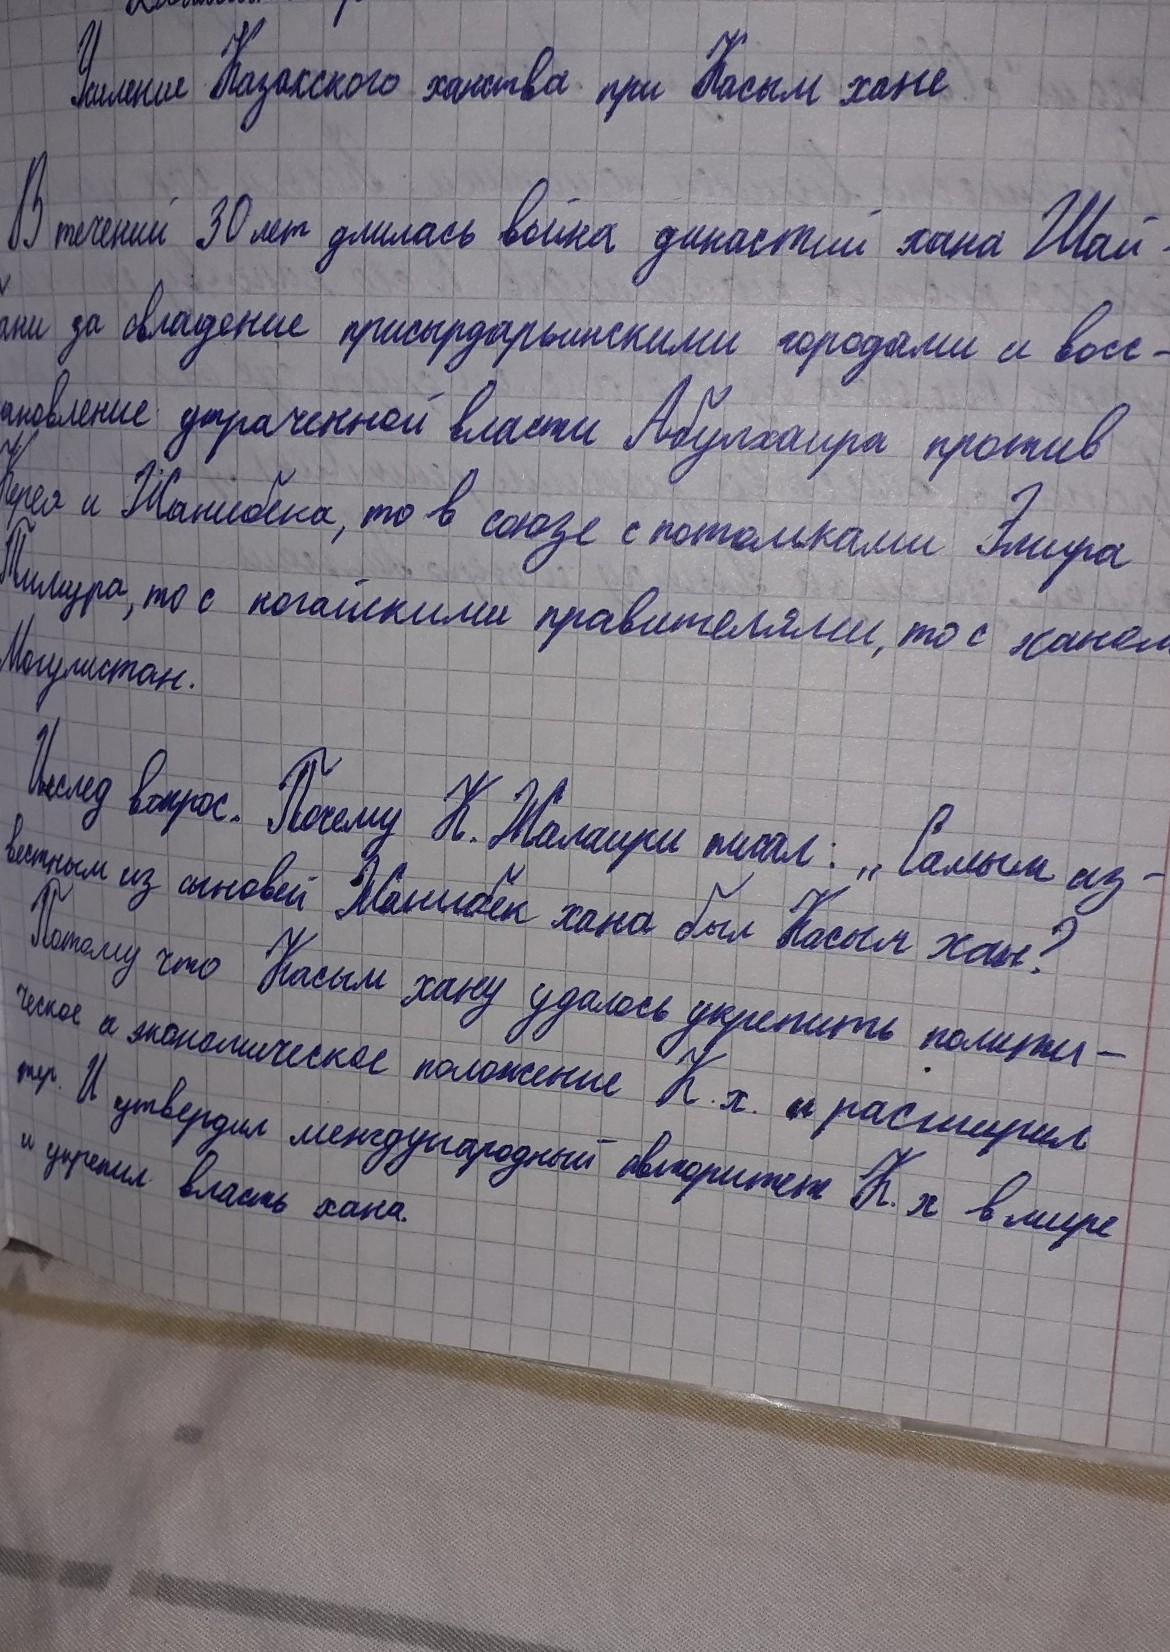 Усиление Казахского ханства при Касым хане
В течений 30 лет длилась война династий хана Шай-
ани за овладение присырдарьинскими городами и восс-
ановление утраченной власти Абулхаира против
Керея и Жанибека, то в союзе с потомками Эмира
Тимура, то с ногайскими правителями, то с ханом
Могулистан.
Исслед вопрос. Почему К. Жалаири писал: „Самым из-
вестным из сыновей Жанибек хана был Касым хан?
Потому что Касым хану удалось укрепить полити-
ческое и экономическое положение К.х. и расширил
тер. И утвердил международный авторитет К.х в мире
и укрепил власть хана.